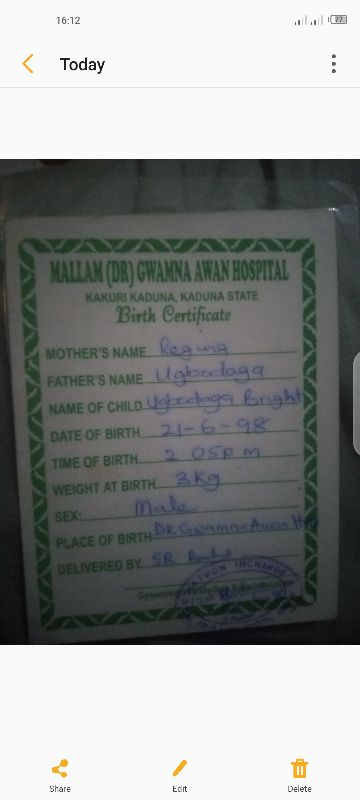 16:12
77
Today
MALLAM (DR) GWAMNA AWAN HOSPITAL
KAKURI KADUNA, KADUNA STATE
Birth Certificate
MOTHER'S NAME Regina
FATHER'S NAME Ugbodaga
NAME OF CHILD Ugbodaga Bright
DATE OF BIRTH 21-6-98
TIME OF BIRTH 2 05pm
WEIGHT AT BIRTH 3kg
SEX: Male
PLACE OF BIRTH DR Gwamna Awan
DELIVERED BY SR
INCHARGE
Share Edit Delete